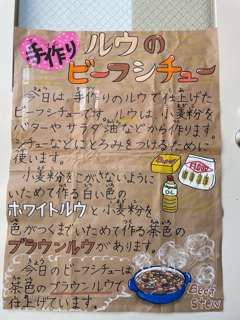 手作り
ルウの
ビーフシチュー
今日は、手作りのルウで仕上げた
ビーフシチューです。ルウは、小麦粉を
バターやサラダ油などから作ります。
シチューなどにとろみをつけるために
使います。
小麦粉をこがさないように
いためて作る白い色の
ホワイトルウと小麦粉を
色がつくまでいためて作る茶色の
ブラウンルウがあります。
今日のビーフシチューは
茶色のブラウンルウで
仕上げています。
OIL
Beef
stew